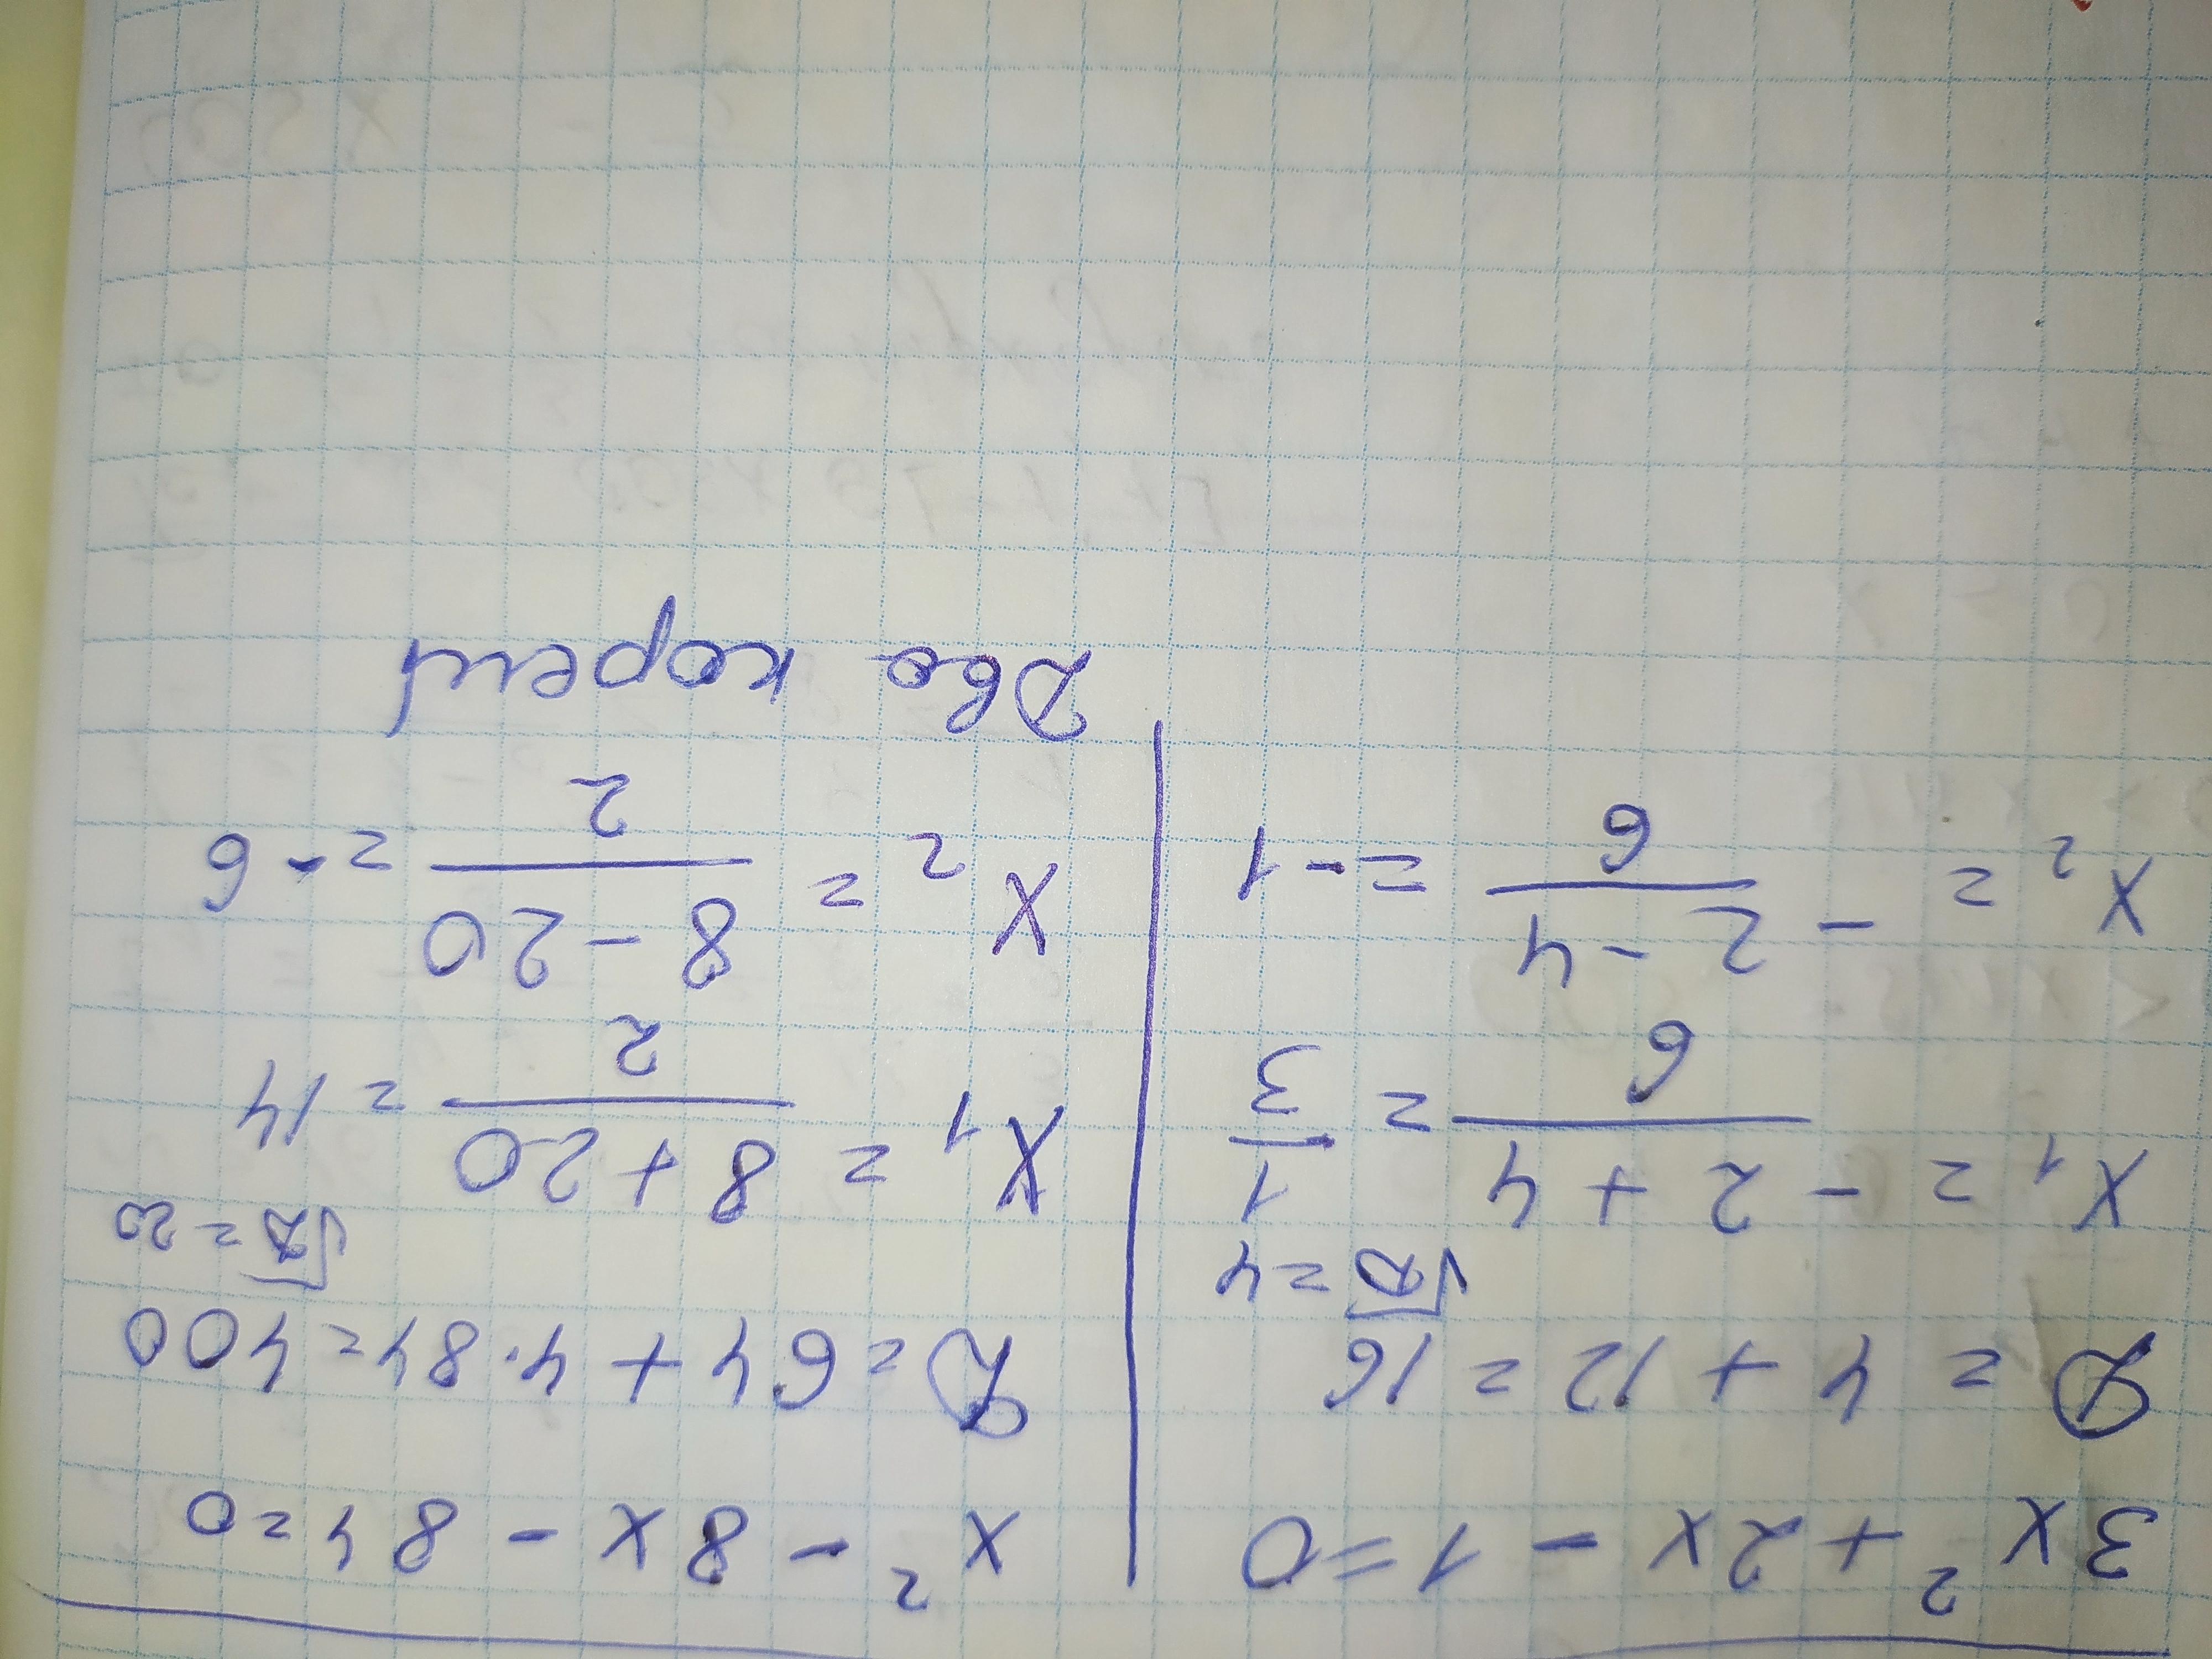 3x² + 2x - 1 = 0
D = 4 + 12 = 16
√D = 4
x₁ = (-2 + 4)/6 = 1/3
x₂ = -(2 - 4)/6 = -1
x² - 8x - 84 = 0
D = 64 + 4·84 = 400
√D = 20
x₁ = (8 + 20)/2 = 14
x₂ = (8 - 20)/2 = -6
Два корені